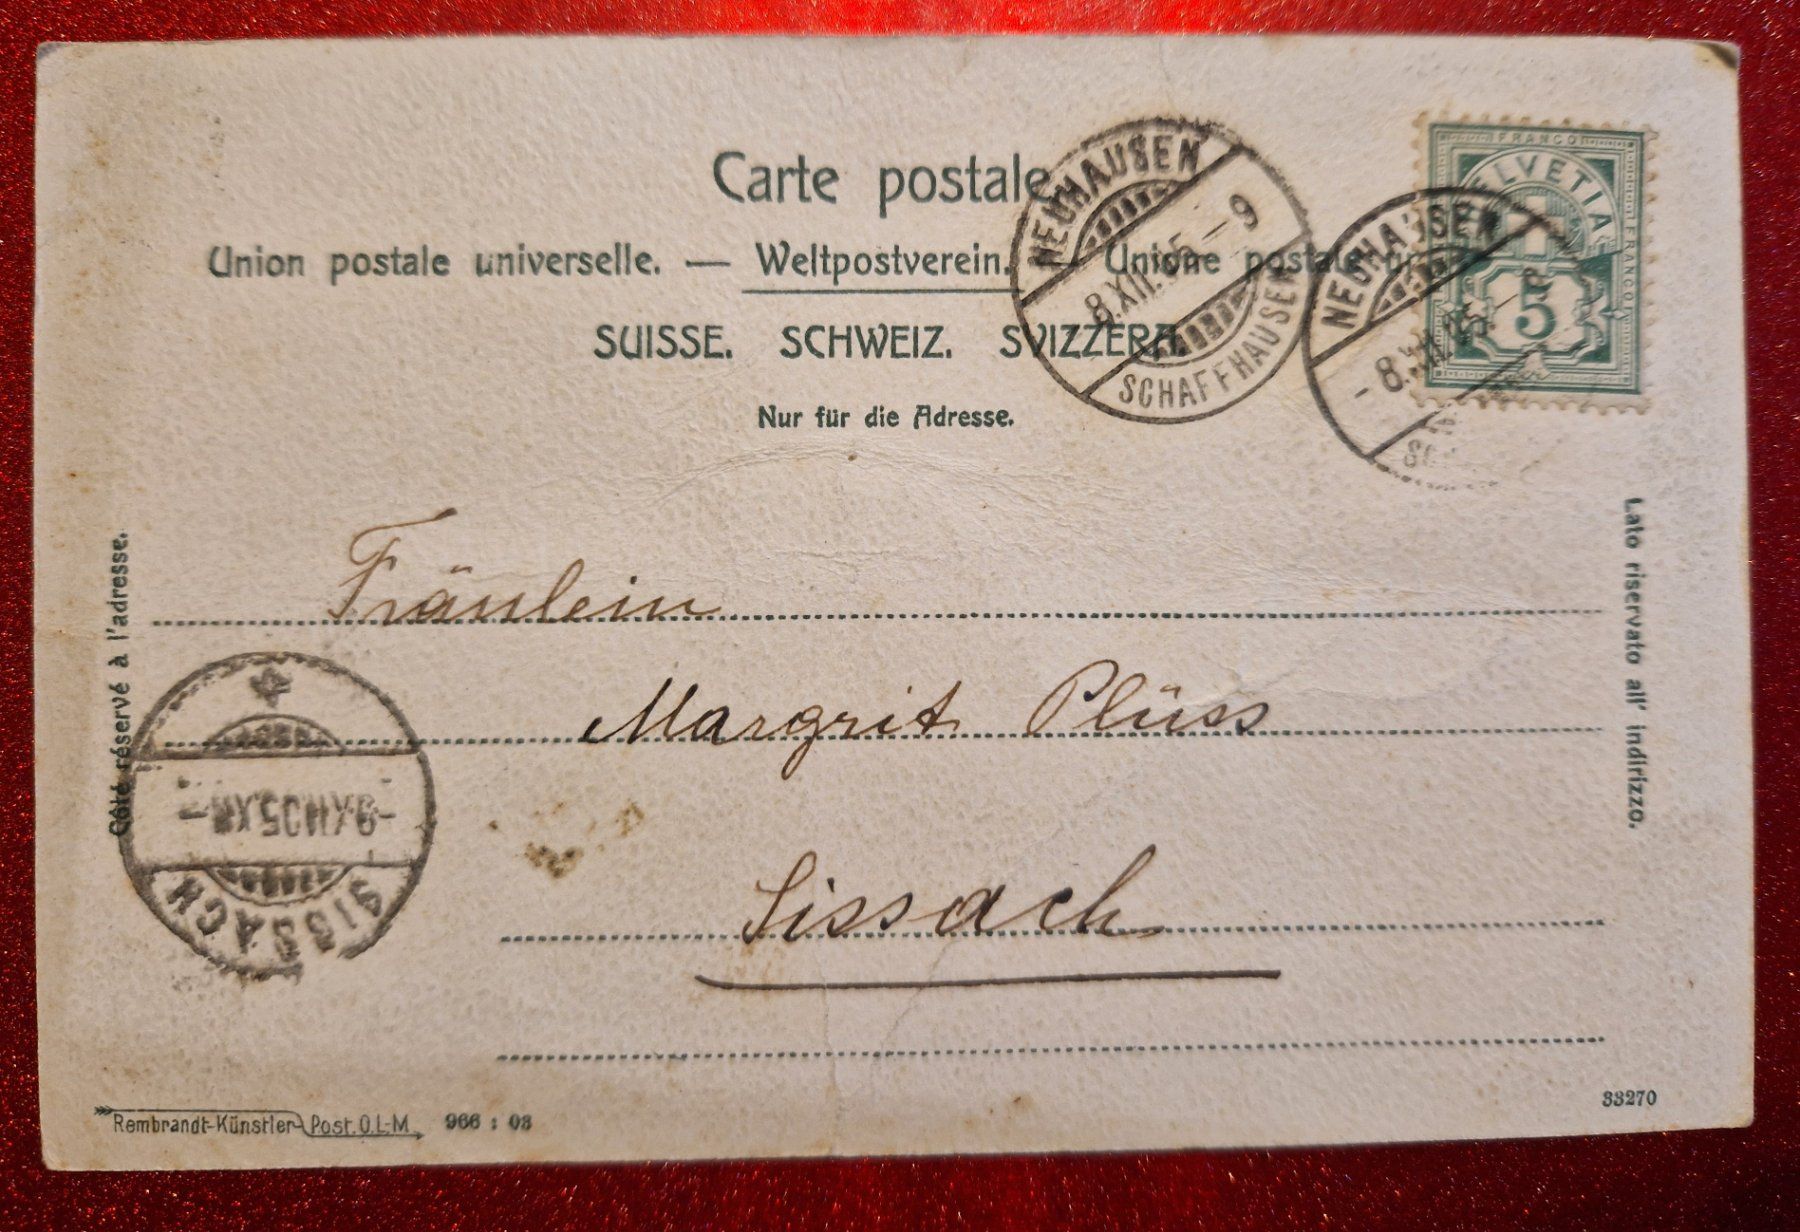 Carte postale
Union postale universelle. — Weltpostverein. — Unione postale
SUISSE. SCHWEIZ. SVIZZERA.
Nur für die Adresse.
NEUHAUSEN
8.XII.05 – 9
SCHAFFHAUSEN
NEUHAUSEN
- 8.XII.05.
FRANCO
HELVETIA
FRANCO
5
Côté réservé à l'adresse.
Lato riservato all' indirizzo.
Fräulein
Margrit Plüss
Sissach
SISSACH
-9.XII.05.XII-
Rembrandt-Künstler-Post. O.L-M. 966 : 03
33270